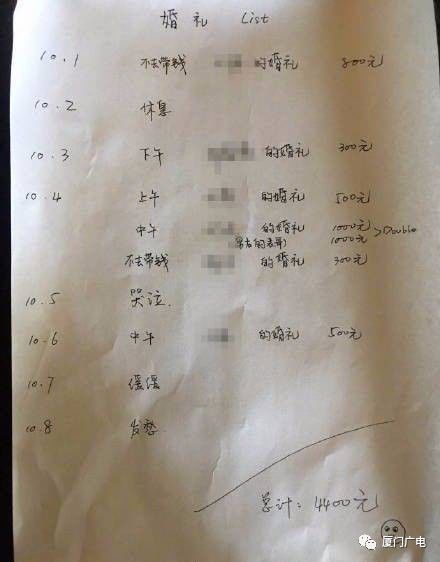 婚礼 List
10.1 不去带钱 的婚礼 800元
10.2 休息
10.3 下午 的婚礼 300元
10.4 上午 的婚礼 500元
中午 的婚礼 1000元 >Double
男友的 1000元
不去带钱 的婚礼 300元
10.5 哭泣.
10.6 中午 的婚礼 500元
10.7 缓缓
10.8 发愁
总计: 4400元
厦门广电